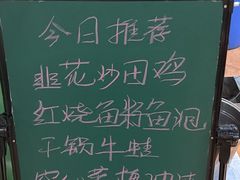 今日推荐
韭花炒田鸡
红烧鱼籽鱼泡
干锅牛蛙